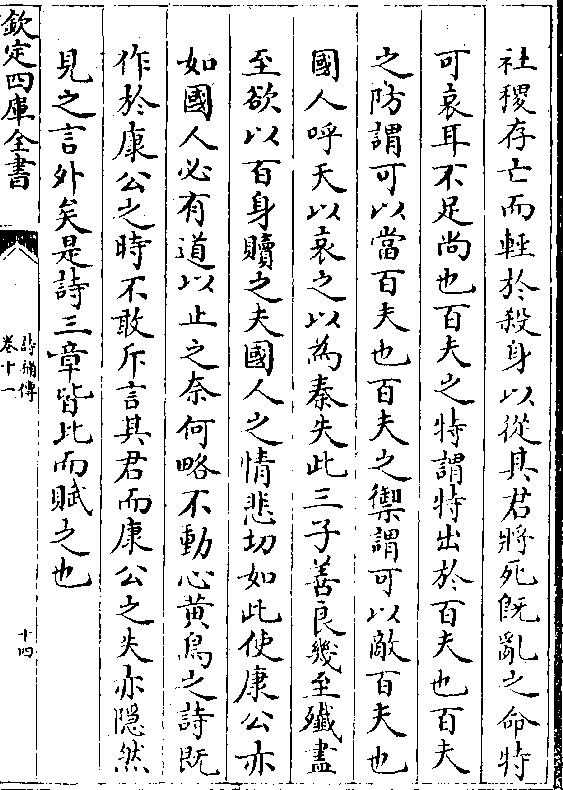 社稷存亡而輕於殺身以從其君將死旣亂之命特
可哀耳不足尚也百夫之特謂特出於百夫也百夫
之防謂可以當百夫也百夫之禦謂可以敵百夫也
國人呼天以哀之以為秦失此三子善良幾至殱盡
至欲以百身贖之夫國人之情悲切如此使康公亦
如國人必有道以止之奈何略不動心黄鳥之詩既
作於康公之時不敢斥言其君而康公之失亦隱然
見之言外矣是詩三章皆比而賦之也
欽定四庫全書
詩補傳
卷十一
十四